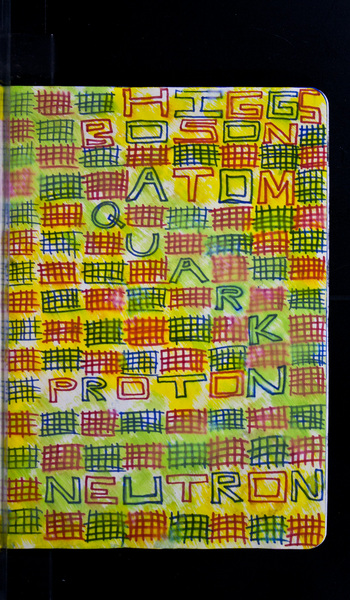 HIGGS
BOSON
ATOM
QUARK
PROTON
NEUTRON